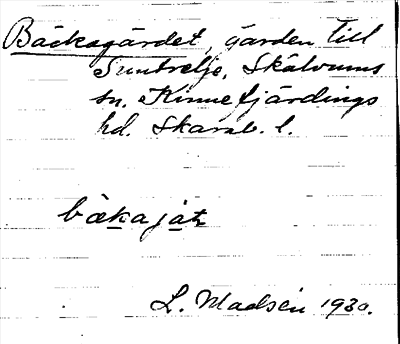 Bäckagärdet, gården till
Suntrelje, Skälvums
sn. Kinnefjärdings
hd. Skarab. l.
bækajæt
L. Madsén 1930.